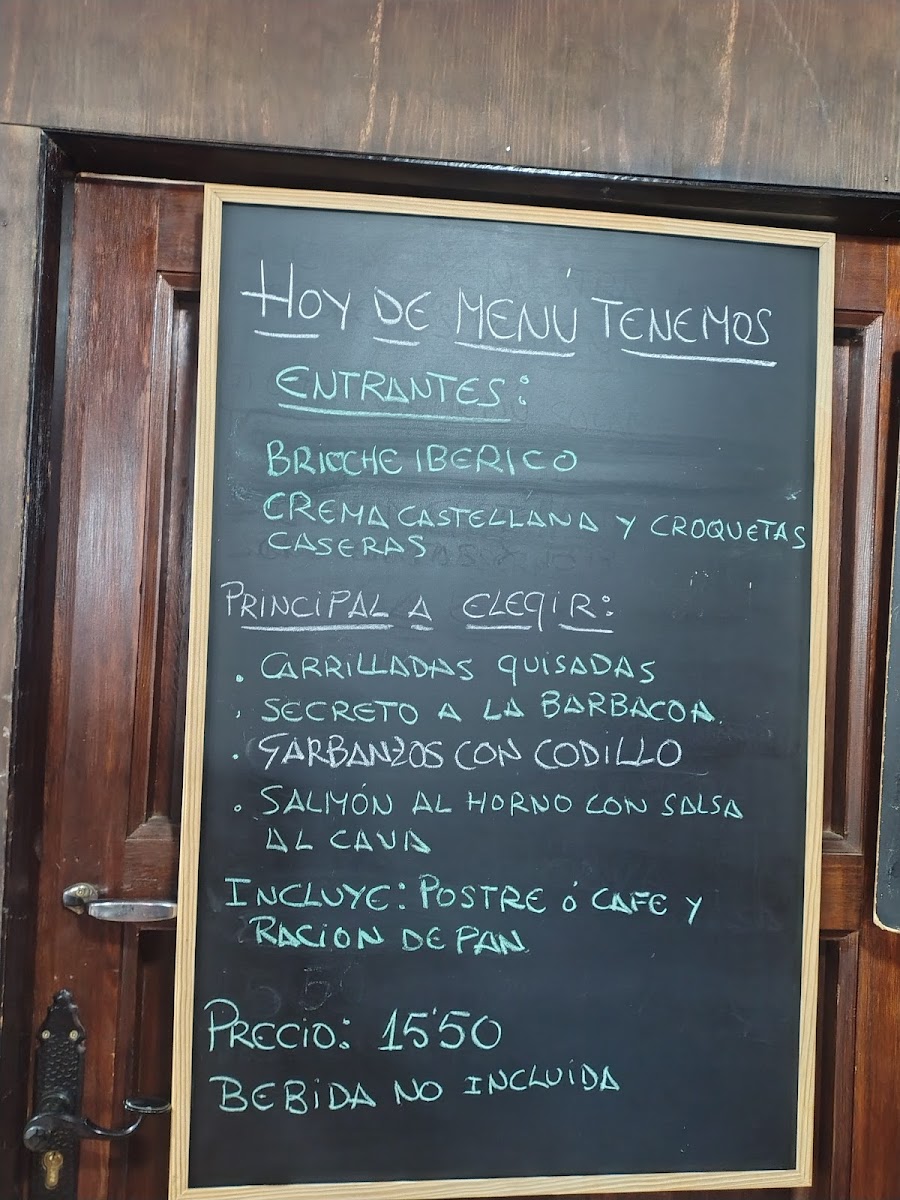 HOY DE MENÚ TENEMOS
ENTRANTES:
BRIOCHE IBERICO
CREMA CASTELLANA Y CROQUETAS
CASERAS
PRINCIPAL A ELEGIR:
. CARRILLADAS GUISADAS
. SECRETO A LA BARBACOA.
. GARBANZOS CON CODILLO
. SALMÓN AL HORNO CON SALSA
AL CAVA
INCLUYE: POSTRE Ó CAFE Y
RACION DE PAN.
PRECIO: 15'50
BEBIDA NO INCLUIDA